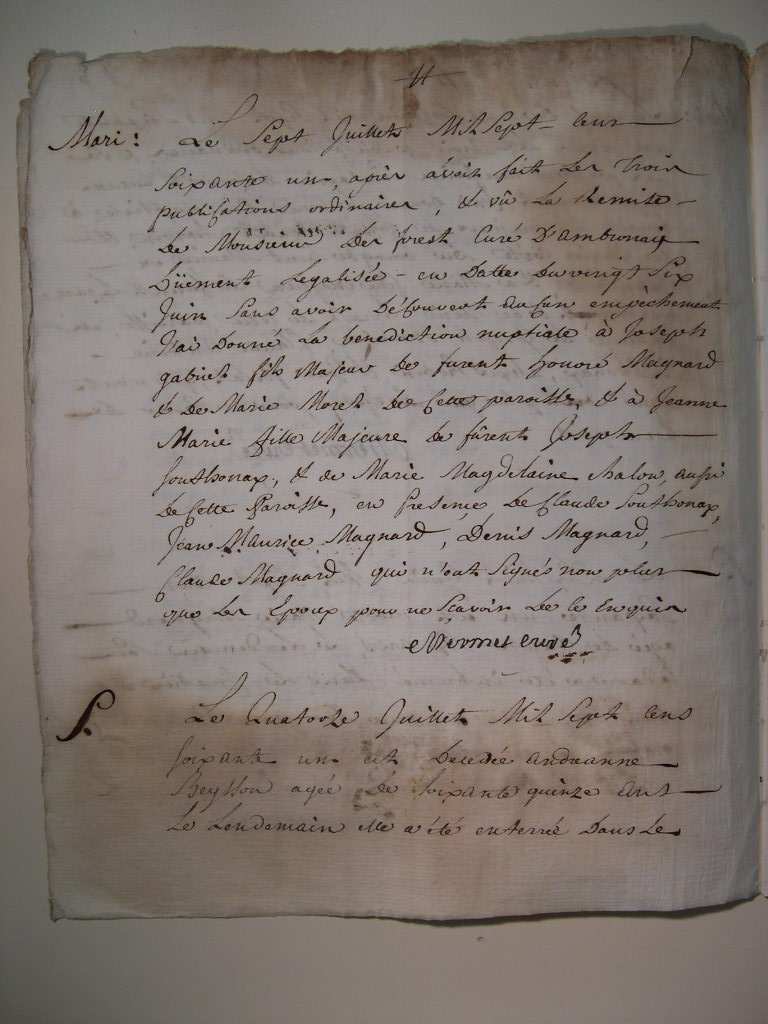 11
Mari: Le Sept Juillet Mil Sept Cent
Soixante un, après avoir fait les trois
publications ordinaires, & vû la Remise
de Monsieur Des forest Curé D'ambronaix
Düement Legalisée en Datte du vingt Six
Juin Sans avoir Découvert aucun empêchement
J'ai Donné La benediction nuptiale à Joseph
gabriel fils Majeur De furent honoré Magnard
& De Marie Moret de Cette paroisse, & à Jeanne
Marie fille Majeure de fûrent Joseph
Jouthonax, & de Marie Magdelaine chalon, aussi
De Cette Paroisse, en Presence De Claude Jouthonax,
Jean Maurice Magnard, Denis Magnard,
Claude Magnard qui n'ont Signés non plus
que les Epoux pour ne Scavoir De ce Enquis
Mermet curé
S. Le Quatorze Juillet Mil Sept Cens
Soixante un est Decedée andréanne
agée de Soixante quinze ans
Le Lendemain elle a été enterrée Dans Le